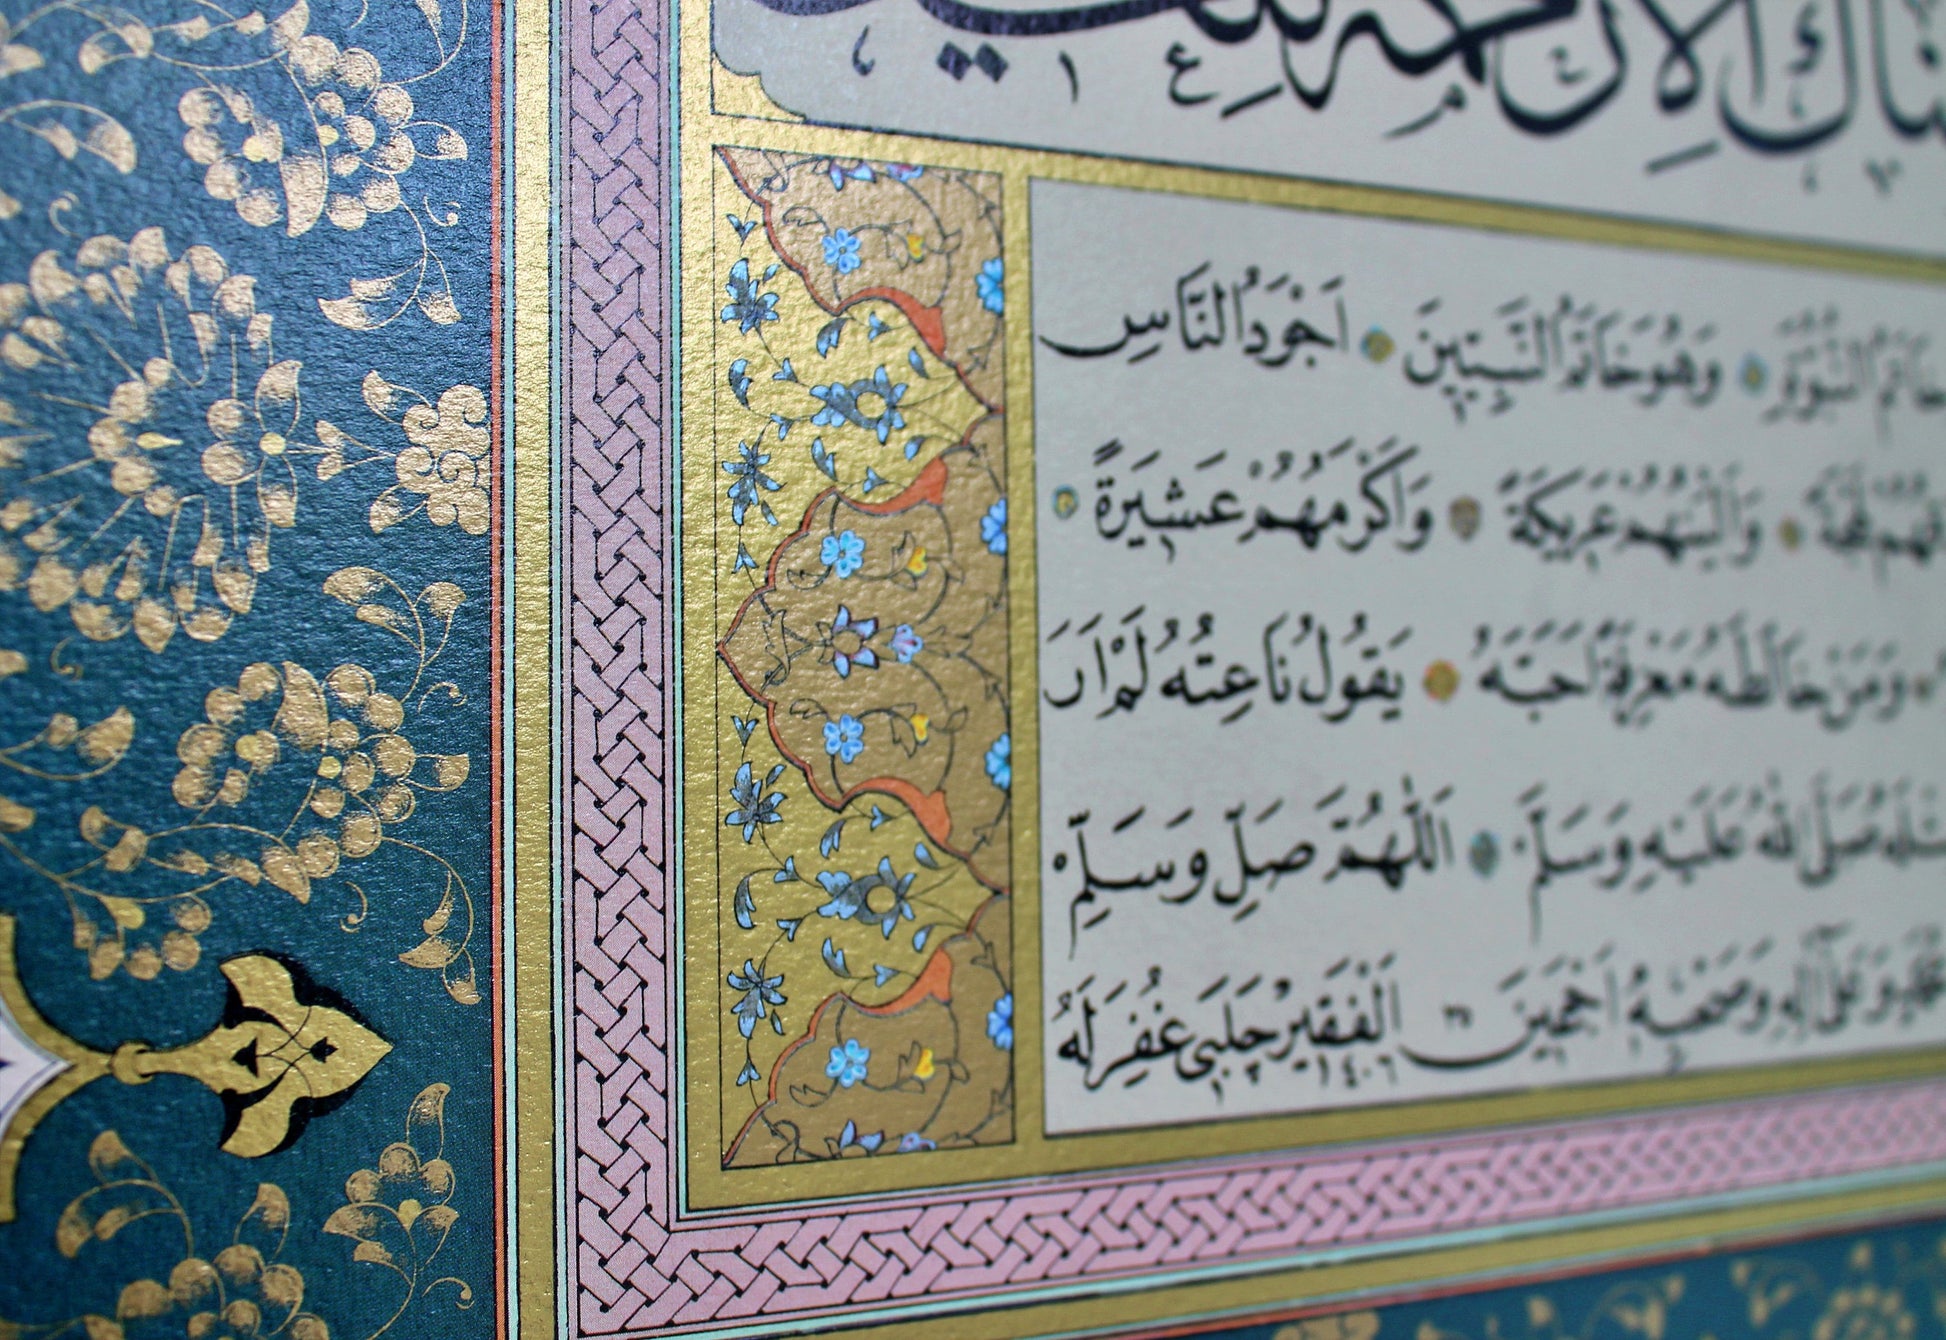 ناك الا رحمة للعا
خاتم النبوة وَهُوَ خَاتَمُ النَّبِيّينَ اَجْوَدُ النَّاسِ
لهجة وَاَلْيَنُهُمْ عَرِيكَةً وَاَكْرَمُهُمْ عَشِيرَةً
وَمَنْ خَالَطَهُ مَعْرِفَةً اَحَبَّهُ يَقُولُ نَاعِتُهُ لَمْ اَرَ
صَلَّى اللّٰهُ عَلَيْهِ وَسَلَّمَ اَللّٰهُمَّ صَلِّ وَسَلِّمْ
وَعَلَى اٰلِهِ وَصَحْبِهِ اَجْمَعِينَ اَلْفَقِيرْ چَلَبِى غُفِرَ لَهُ ١٤٠٦